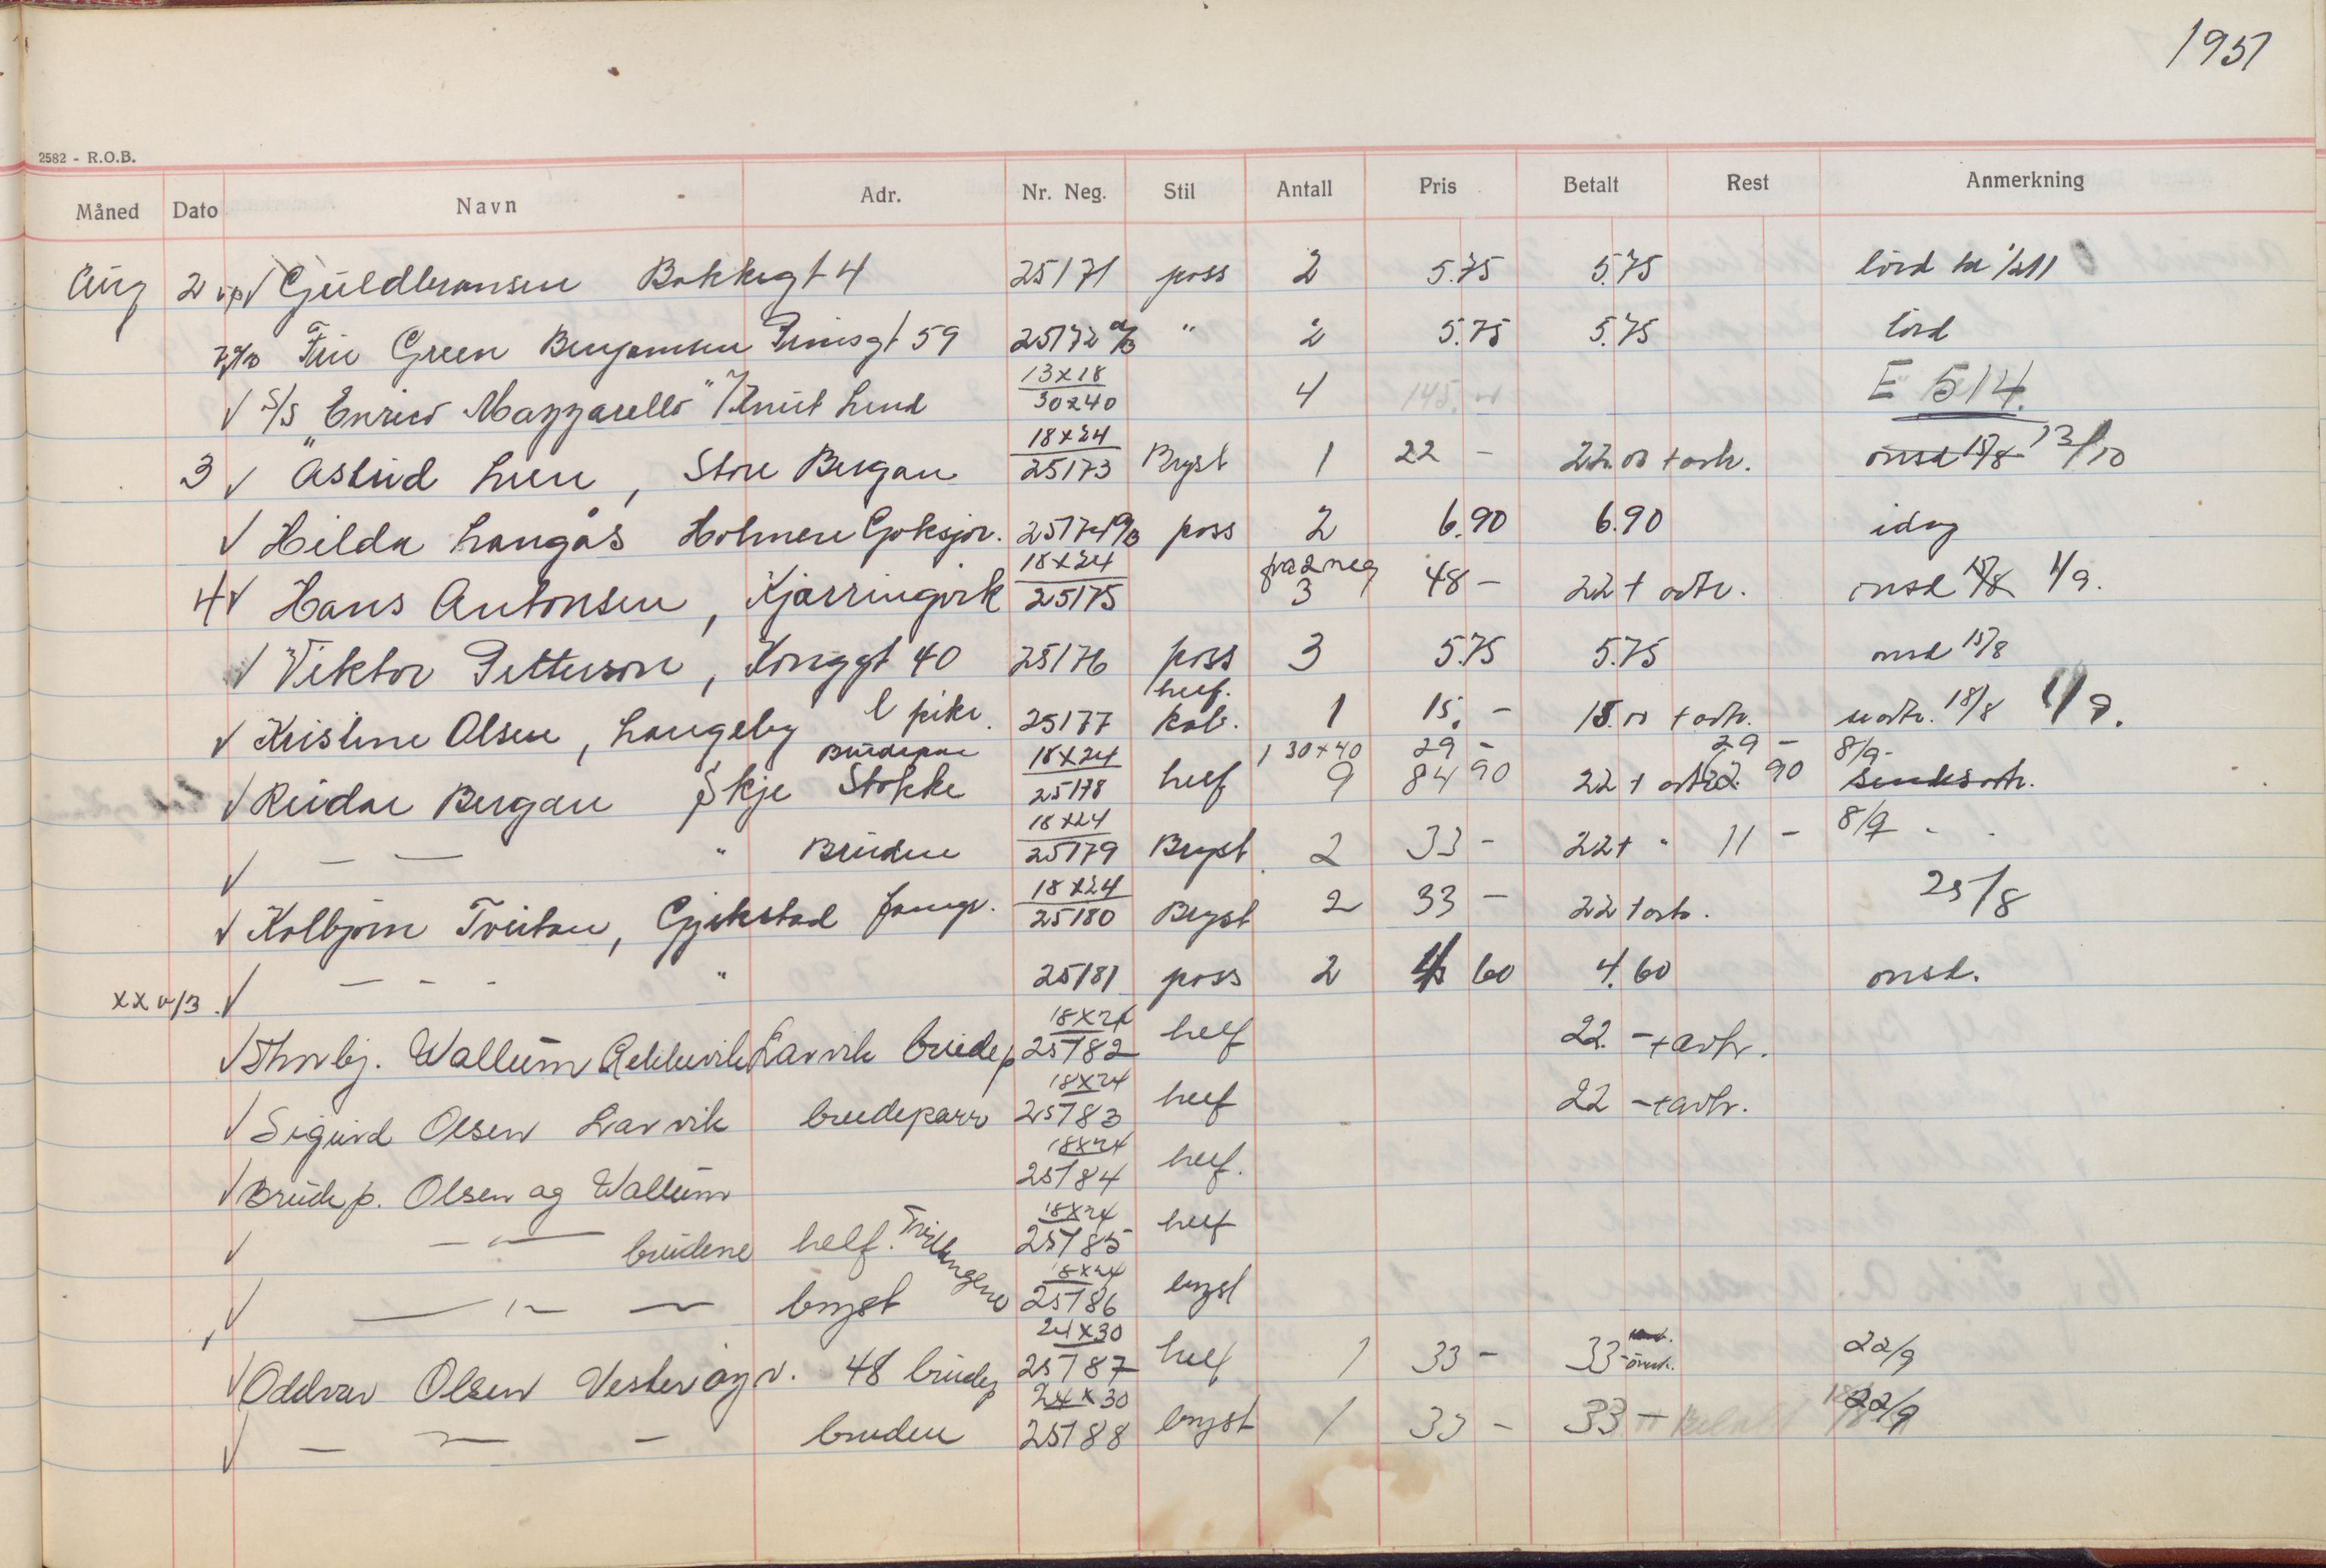 1951
2582 - R.O.B.
Måned Dato Navn Adr. Nr. Neg. Stil Antall Pris Betalt Rest Anmerkning
Aug 2 √ Guldbransen Bakkegt 4 25171 pass 2 5.75 5.75 lörd
Green Benjamsen Prinsgt 59 25172 a/b " 2 5.75 5.75 lörd
√ S/S "Enrico Mazzarello" Knut Lund 13x18 30x40 4 145. E 514.
3 √ Astrid Lien, Store Bergan 18x24 25173 Bryst 1 22 - 22.00 + ark. onsd 15/8 13/10
√ Hilda Langås Holmen Goksjø. 25174 a/b pass 2 6.90 6.90 idag
4 √ Hans Antonsen, Kjærringvik 18x24 25175 fra 2 neg 3 48 - 22 + ovtr. onsd 15/8 1/9.
√ Viktor Petterson, Konggt 40 25176 pass 3 5.75 5.75 onsd 15/8
√ Kristine Olsen, Langeby l pike. 25177 helf. kab. 1 15. - 15.00 + ovtr. 18/8 1/9.
√ Reidar Bergan Skje Stokke Brudepar 18x24 25178 helf 1 30x40 9 29 - 84 90 22 + 29 - 90 8/9-
√ — — " Bruden 18x24 25179 Bryst 2 33 - 22 + " 11 - 8/9 - -
√ Kolbjørn Tveitan, Gjekstad 18x24 25180 Bryst 2 33 - 22 + 25/8
xx √ - - - " 25181 pass 2 4 60 4.60 onsd.
√ Thorbj. Wallum Larvik brudep 18x24 25182 helf 22. - + ovtr.
√ Sigurd Olsen Larvik brudeparr 18x24 25183 helf 22 - + ovtr.
√ Brudep. Olsen og Wallum 18x24 25184 helf.
√ — " — brudene helf. Tvillingene 18x24 25185 helf
√ — " — — bryst 18x24 25186 bryst
√ Oddvar Olsen Vesterøyv. 48 brudep 24x30 25187 helf 1 33 - 33 - 22/9
√ — — — bruden 24x30 25188 bryst 1 33 - 33 - 22/9